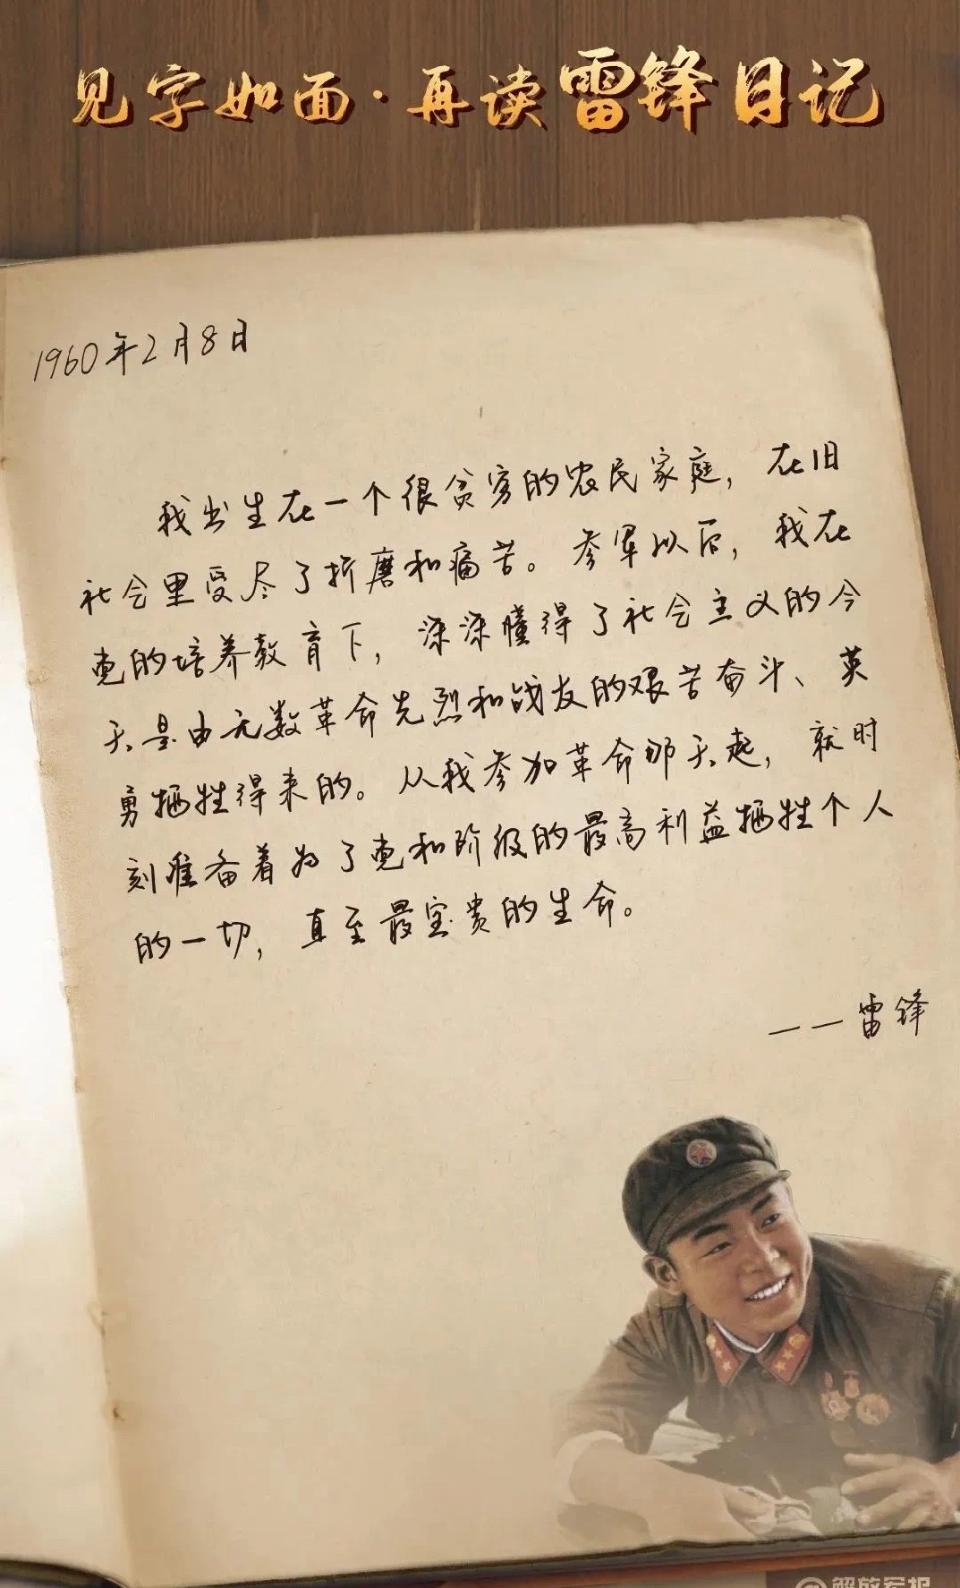 见字如面·再读雷锋日记
1960年2月8日
我出生在一个很贫穷的农民家庭，在旧
社会里受尽了折磨和痛苦。参军以后，我在
党的培养教育下，深深懂得了社会主义的今
天是由无数革命先烈和战友的艰苦奋斗、英
勇牺牲得来的。从我参加革命那天起，就时
刻准备着为了党和阶级的最高利益牺牲个人
的一切，直至最宝贵的生命。
——雷锋
解放军报